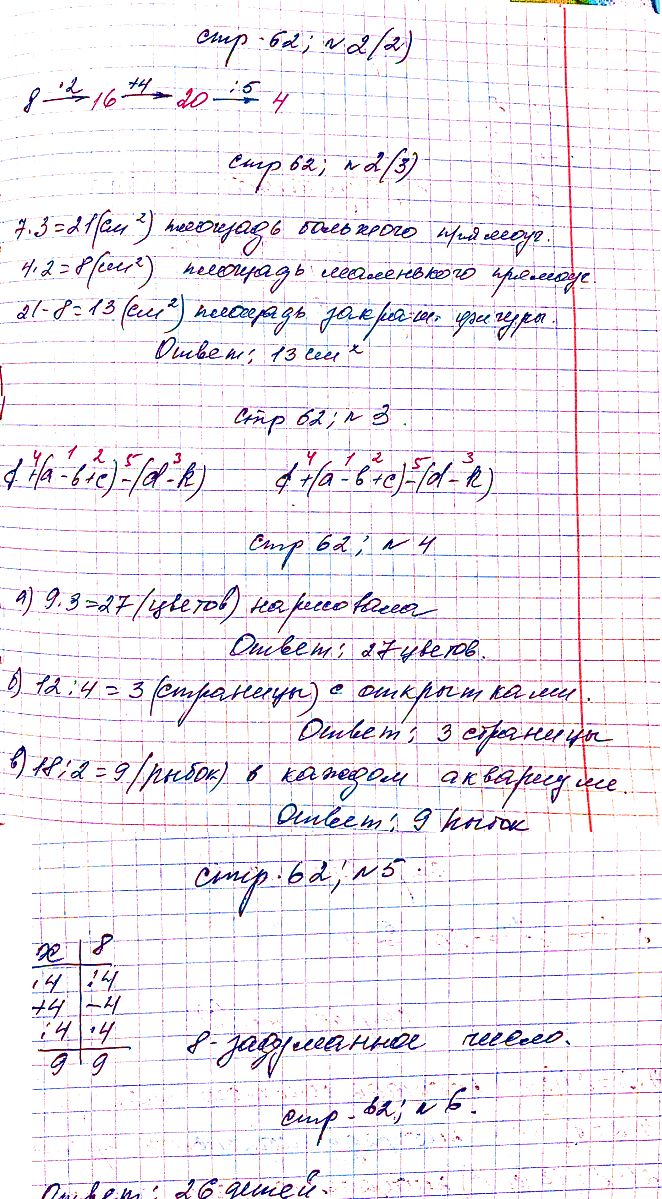 стр. 62; №2(2)
8 ·2→ 16 +4→ 20 :5→ 4
стр 62; №2(3)
7·3=21(см²) площадь большого прямоуг.
4·2=8(см²) площадь маленького прямоуг.
21-8=13(см²) площадь закраш. фигуры.
Ответ: 13 см²
стр 62; №3.
4 1 2 5 3 4 1 2 5 3
d+(a-b+c)-(d-k) d+(a-b+c)-(d-k)
стр 62; №4
а) 9·3=27(цветов) нарисовала
Ответ: 27 цветов.
б) 12:4=3(страницы) с открытками.
Ответ: 3 страницы
в) 18:2=9(рыбок) в каждом аквариуме.
Ответ: 9 рыбок
стр. 62; №5.
x 8
·4 :4
+4 -4
:4 ·4
9 9
8-задуманное число.
стр. 62; №6.
Ответ: 26 детей.